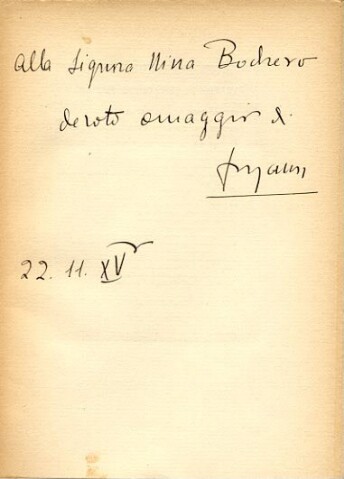 Alla Signora Nina Bodrero
devoto omaggio di
22. 11. XV